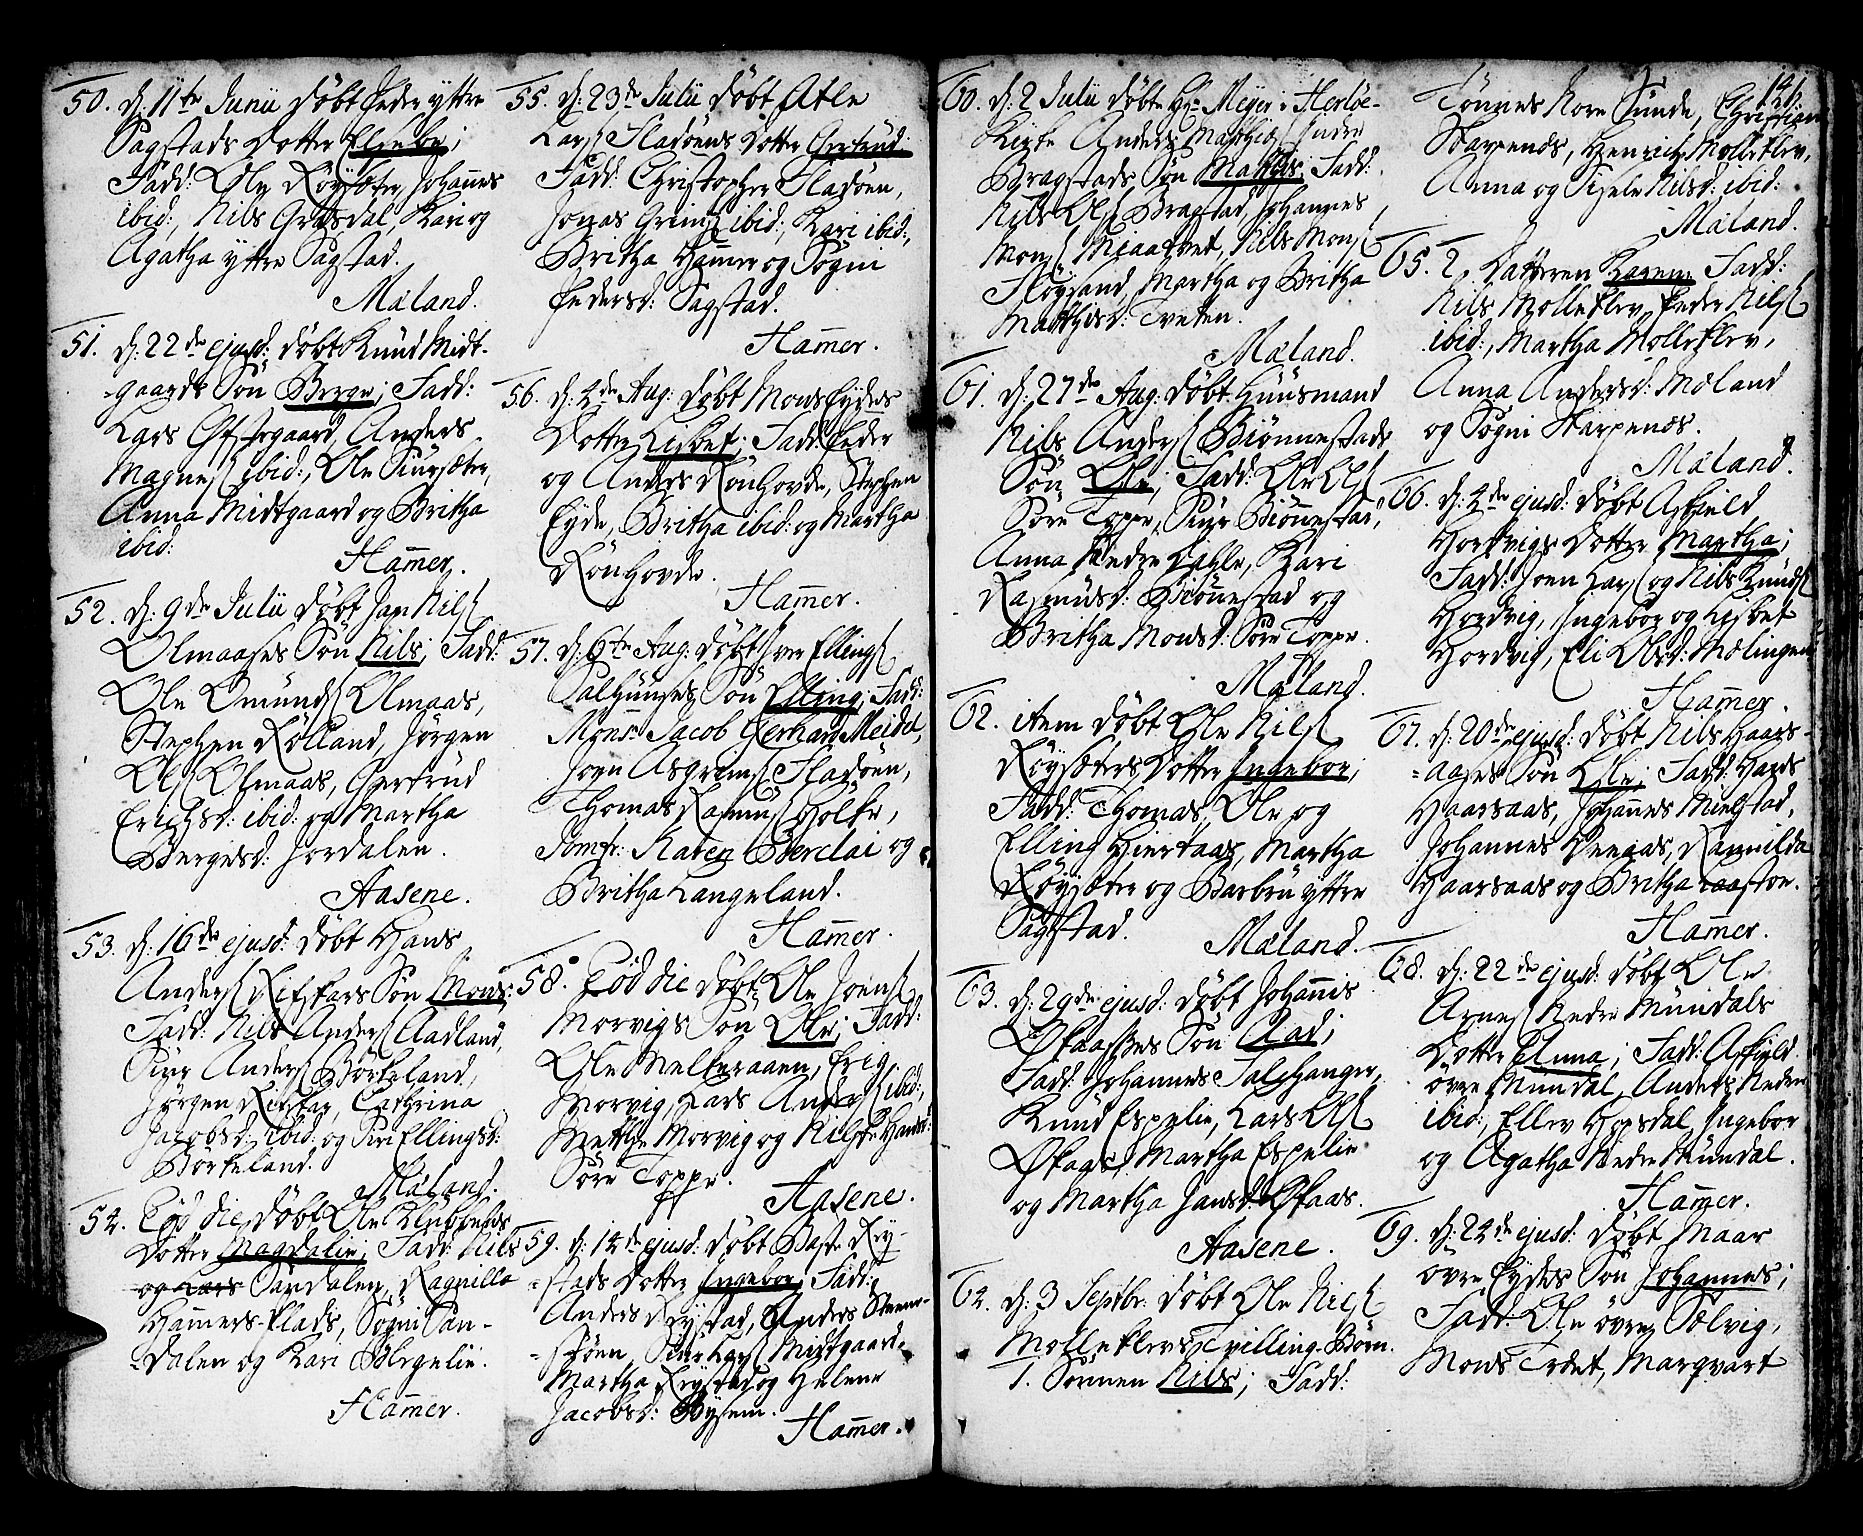 50. d: 11te Junii døbt Peder yttre
Sagstads Dotter Elsebe;
Fadd: Ole Røysæter, Johannes
ibid:, Nils Gripsdal, Kari og
Agatha yttre Sagstad.
Mæland.
51. d: 22de ejusd: døbt Knud Midt-
gaards Søn Berge; Fadd:
Lars Øfstegaard, Anders
Magnes ibid:, Ole Siursæter,
Anna Midtgaard og Britha
ibid:
Ham̄er.
52. d: 9de Julii døbt Jan Nils
Olmaases Søn Nils; Fadd:
Ole Omunds Olmaas,
Stephen Rølland, Jørgen
Ols Olmaas, Gertrud
Erichsd: ibid: og Martha
Bergesd: Jordalen.
Aasene.
53. d: 16de ejusd: døbt Hans
Anders Refskars Søn Mons;
Fadd: Nils Anders Aadland,
Siur Anders Børkeland,
Jørgen Refskar, Cathrina
Jacobsd: ibid: og Siri Ellingsd:
Børkeland.
Mæland.
54. Eod die døbt Ole Klubbens
Dotter Magdalin; Fadd: Nils
og Lars Sandalen, Ragnilla
Ham̄ers-Plads, Søgni San-
dalen og Kari Helgelie.
Ham̄er.
55. d: 23de Julii døbt Atle
Lars Fladøens Dotter Gertrud:
Fadd: Christopher Fladøen,
Jonas Grims ibid:, Kari ibid:,
Britha Ham̄er og Søgni
Pedersd: Sagstad.
Ham̄er.
56. d: 4de Aug: døbt Mons Eydes
Dotter Lisbet; Fadd: Peder
og Anders Rønhovde, Stephen
Eyde, Britha ibid: og Martha
Rønhovde.
Ham̄er.
57. d: 6te Aug: døbt Iver Ellings
Salhuuses Søn Elling; Fadd:
Monsr: Jacob Gerhard Meidel,
Joen Asgrims Fladøen,
Thomas Rasmus Holke,
Jomfr: Karen Berclai og
Britha Langeland.
Ham̄er.
58. Eod die døbt Ole Joens
Morvigs Søn Ole; Fadd:
Ole Melkeraaen, Erig
Morvig, Lars Anders ibid:,
Mette Morvig og Nilske Hansd:
Søre Toppe.
Aasene.
59. d: 14de ejusd: døbt Baste Rey-
stads Dotter Ingebor; Fadd:
Anders Reystad, Anders Steens-
støen, Siur Lars Midtgaard,
Martha Reystad og Helene
Jacobsd: Bysem.
Ham̄er.
60. d: 2 Julii døbte Hr: Meyer i Herløe-
Kirke Anders Mathis Indre
Bragstads Søn Mathis; Fadd:
Nils Ols Bragstad, Johannes
Mons Miaatvet, Nils Mons
Fløysand, Martha og Britha
Mathisd: Tveten.
Mæland.
61. d: 27de Aug: døbt Huusmand
Nils Anders Biønnestads
Søn Ole; Fadd: Ole Ols
Søre Toppe, Siur Biønnestad,
Anna Nedre Dahle, Kari
Rasmusd: Biønnestad og
Britha Monsd: Søre Toppe.
Mæland.
62. item døbt Ole Nils
Røysæters Dotter Ingebor;
Fadd: Thomas, Ole og
Elling Hiertaas, Martha
Røysæter og Barbru yttre
Sagstad.
Mæland.
63. d: 29de ejusd: døbt Johannis
Økaasses Søn Aad;
Fadd: Johannes Salshanger,
Knud Espelie, Lars Ols
Økaas, Martha Espelie
og Martha Jansd: Økaas.
Aasene.
64. d: 3 Septbr: døbt Ole Nils
Molleklevs Tvilling-Børn.
1. Sønnen Nils; Fadd:
141.
Tønnes Kore Sunde, Christian
Skarpenæs, Henrich Molleklev,
Anna og Sisele Nilsd: ibid:
Mæland.
65. 2. Datteren Karen; Fadd:
Nils Molleklev, Peder Nils
ibid:, Martha Molleklev,
Anna Andersd: Mæland
og Søgni Skarpenæs.
Mæland.
66. d: 4de ejusd: døbt Askield
Hordvigs Dotter Martha;
Fadd: Joen Lars og Nils Knuds
Hordvig, Ingebor og Lisbet
Hordvig, Eli Olsd: Mælingen
Ham̄er.
67. d: 20de ejusd: døbt Nils Haars-
aases Søn Ole; Fadd: Hans
Haarsaas, Johannes Mielstad,
Johannes Veeaas, Ragnilda
Haarsaas og Britha Laastoe.
Ham̄er.
68. d: 22de ejusd: døbt Ole
Arnes Nedre Mundals
Dotter Anna; Fadd: Askield
øvre Mundal, Anders Nedre
ibid:, Ellev Hopsdal, Ingebor
og Agatha Nedre Mundal.
Ham̄er.
69. d: 24de ejusd: døbt Maar
øvre Eydes Søn Johannes;
Fadd: Ole øvre Sælvig,
Mons Trædet, Marqvart